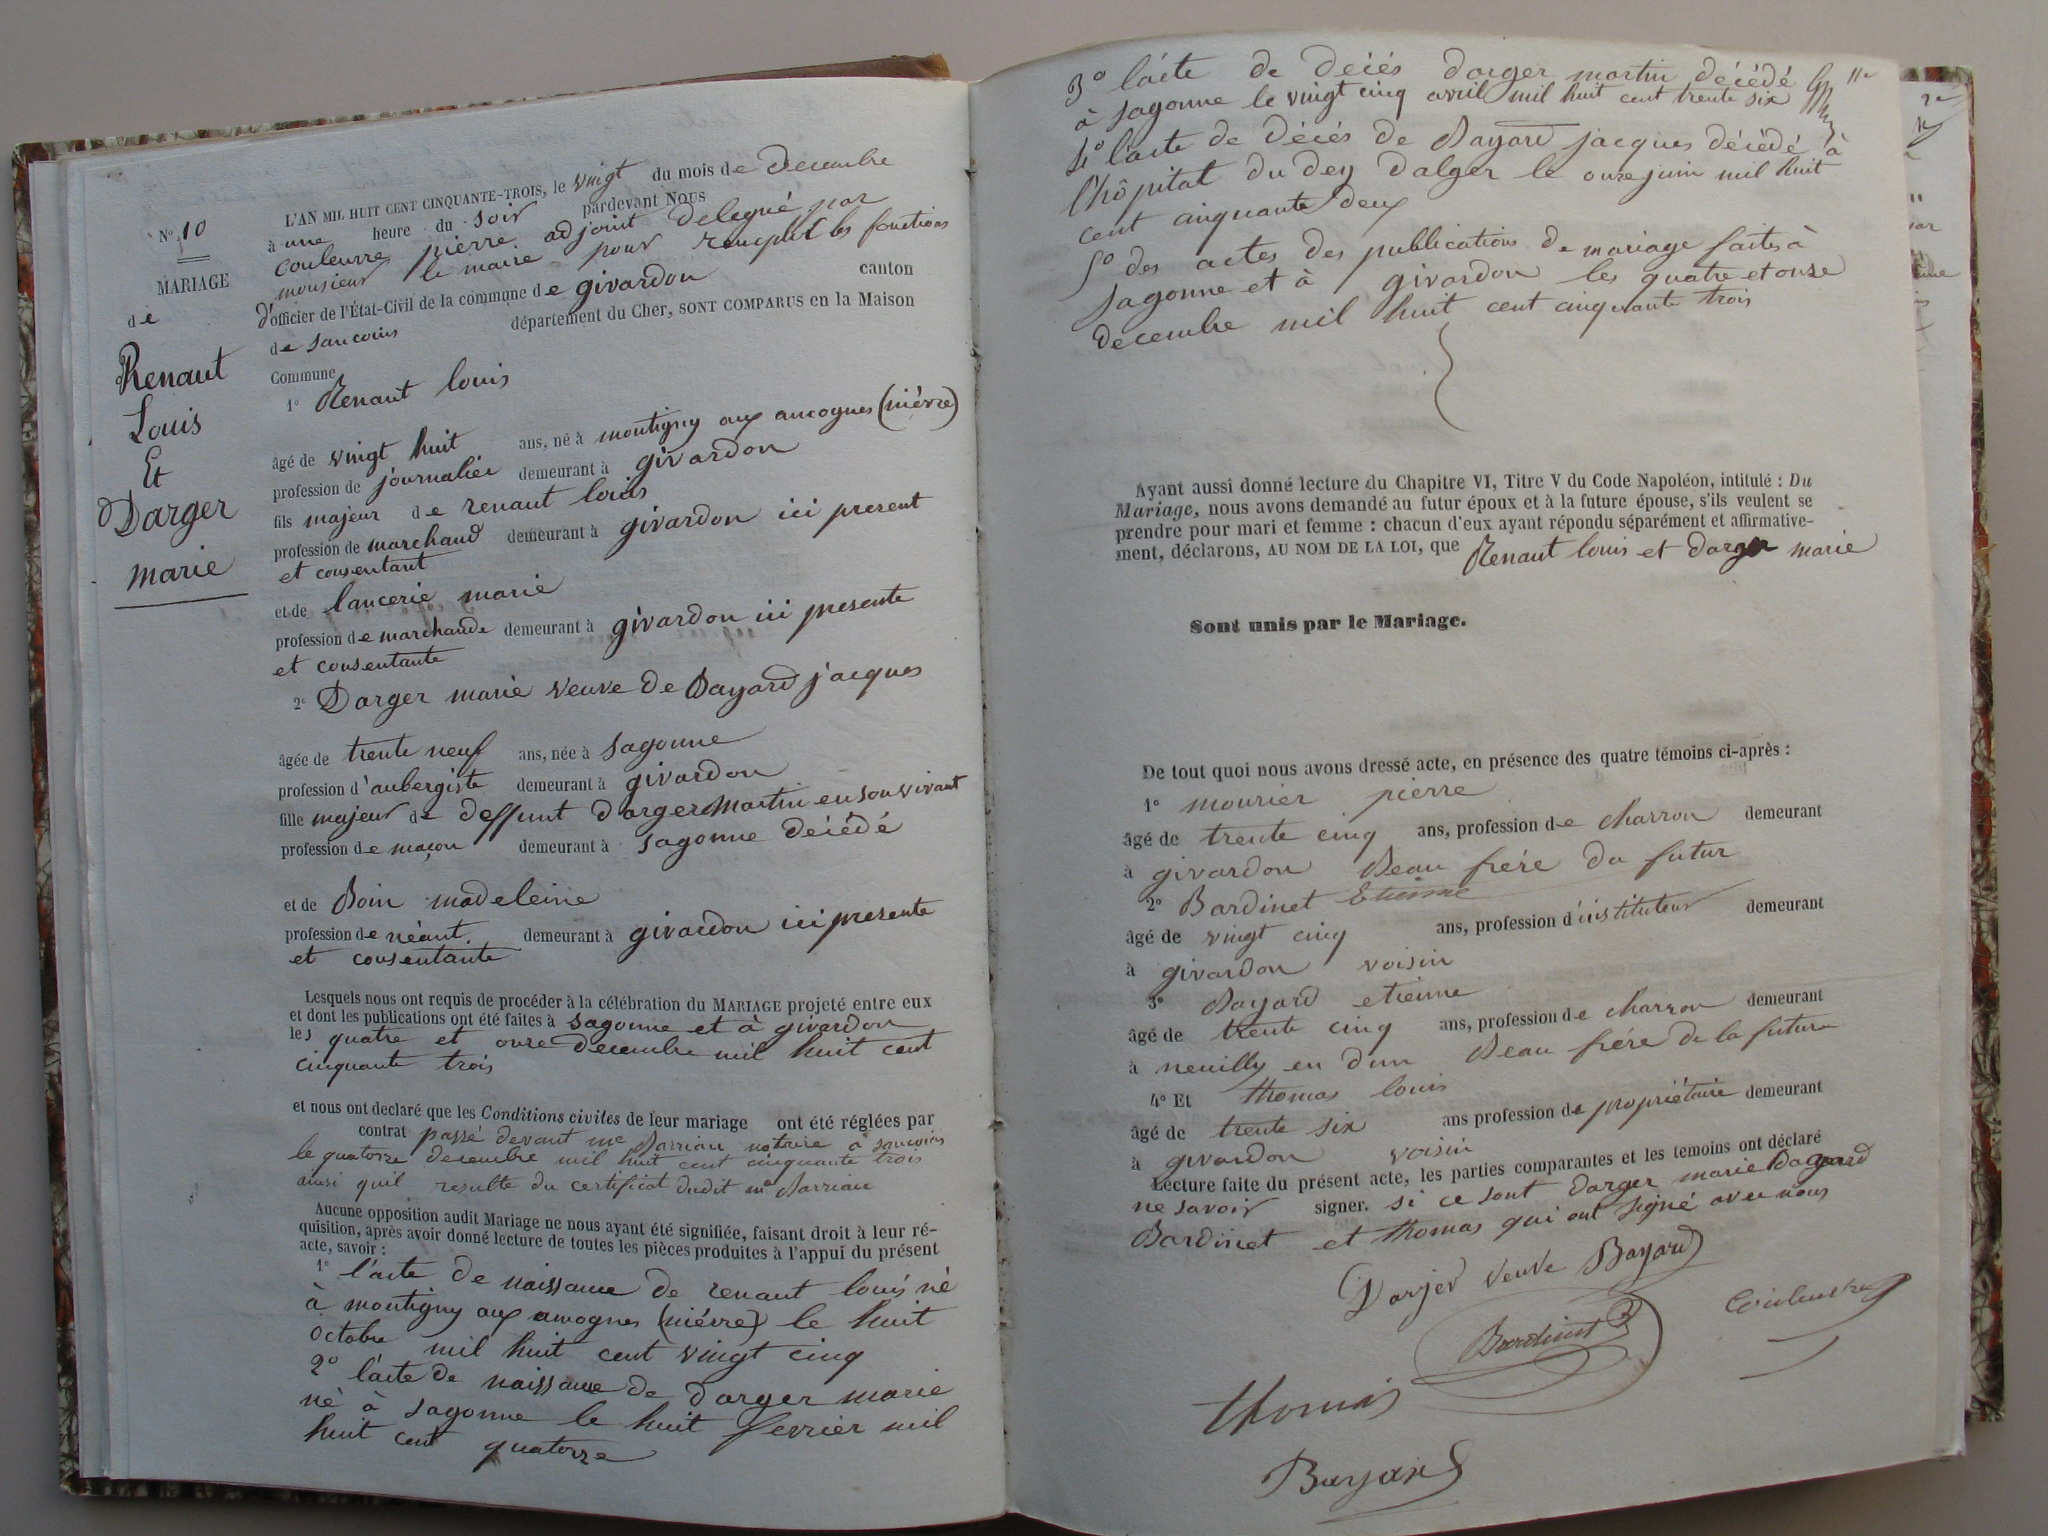 N° 10
MARIAGE
de
Renaut
Louis
Et
Darger
marie
L'AN MIL HUIT CENT CINQUANTE-TROIS, le vingt du mois de decembre
à une heure du soir pardevant NOUS
couleuvre pierre adjoint delegué par
monsieur le maire pour remplir les fonctions
d'officier de l'État-Civil de la commune de givardon canton
de sancoins département du Cher, SONT COMPARUS en la Maison
Commune
1° Renaut louis
âgé de vingt huit ans, né à montigny aux amognes (nièvre)
profession de journalier demeurant à givardon
fils majeur de renaut louis
profession de marchand demeurant à givardon ici present
et consentant
et de lancerie marie
profession de marchande demeurant à givardon ici presente
et consentante
2° Darger marie veuve de Bayard jacques
âgée de trente neuf ans, née à sagonne
profession d'aubergiste demeurant à givardon
fille majeur de deffunt darger martin en son vivant
profession de maçon demeurant à sagonne décédé
et de Boin madeleine
profession de néant. demeurant à givardon ici presente
et consentante
Lesquels nous ont requis de procéder à la célébration du MARIAGE projeté entre eux
et dont les publications ont été faites à sagonne et à givardon
les quatre et onze decembre mil huit cent
cinquante trois
et nous ont declaré que les Conditions civiles de leur mariage ont été réglées par
contrat passé devant me Barriau notaire à sancoins
le quatorze decembre mil huit cent cinquante trois
ainsi quil resulte du certificat dudit me Barriau
Aucune opposition audit Mariage ne nous ayant été signifiée, faisant droit à leur ré-
quisition, après avoir donné lecture de toutes les pièces produites à l'appui du présent
acte, savoir :
1° l'acte de naissance de renaut louis né
à montigny aux amognes (niévre) le huit
octobre mil huit cent vingt cinq
2° l'acte de naissance de darger marie
né à sagonne le huit fevrier mil
huit cent quatorze
3° l'acte de décés darger martin décédé
à sagonne le vingt cinq avril mil huit cent trente six
4° l'acte de décés de Bayard jacques décédé à
l'hôpital du dey d'alger le onze juin mil huit
cent cinquante deux
5° des actes des publications de mariage faites à
sagonne et à givardon les quatre et onze
decembre mil huit cent cinquante trois
Ayant aussi donné lecture du Chapitre VI, Titre V du Code Napoléon, intitulé : Du
Mariage, nous avons demandé au futur époux et à la future épouse, s'ils veulent se
prendre pour mari et femme : chacun d'eux ayant répondu séparément et affirmative-
ment, déclarons, AU NOM DE LA LOI, que Renaut louis et darger marie
Sont unis par le Mariage.
De tout quoi nous avons dressé acte, en présence des quatre témoins ci-après :
1° mourier pierre
âgé de trente cinq ans, profession de charron demeurant
à givardon Beau frére du futur
2° Bardinet Etienne
âgé de vingt cinq ans, profession d'instituteur demeurant
à givardon voisin
3° Bayard etienne
âgé de trente cinq ans, profession de charron demeurant
à neuilly en dun Beau frére de la future
4° Et thomas louis
âgé de trente six ans profession de propriétaire demeurant
à givardon voisin
Lecture faite du présent acte, les parties comparantes et les temoins ont déclaré
ne savoir signer. si ce sont darger marie Bayard
Bardinet et thomas qui ont signé avec nous
Darjer veuve Bayard
Bardinet
Couleuvre
thomas
Bayard